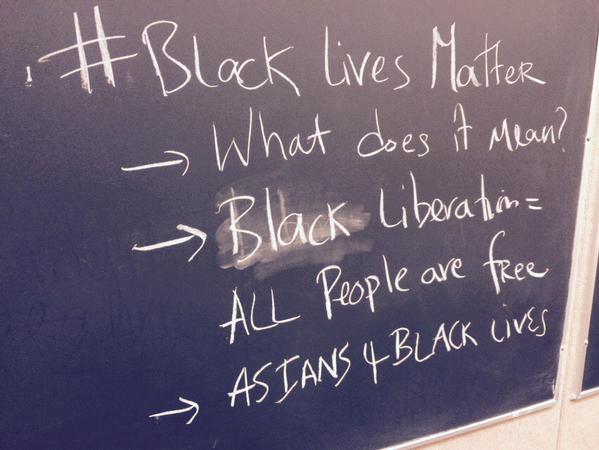 #Black lives Matter
→ What does it Mean?
→ Black Liberation =
ALL People are free
→ ASIANS 4 BLACK LIVES